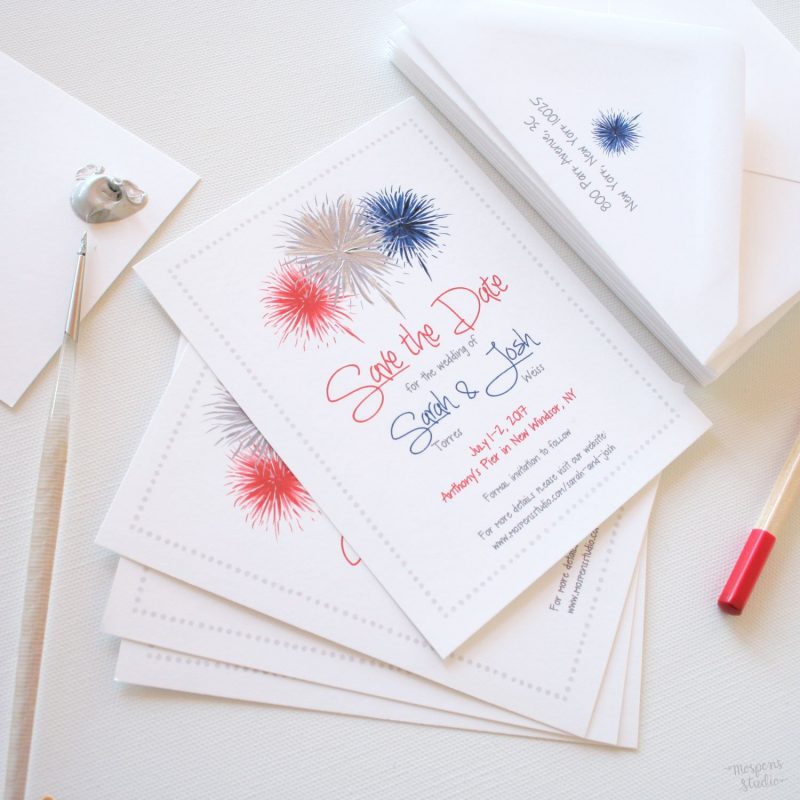 Save the Date
for the wedding of
Sarah & Josh
Torres Weiss
July 1-2, 2017
Anthony's Pier in New Windsor, NY
Formal invitation to follow
For more details please visit our website:
www.mospensstudio.com/sarah-and-josh
For more detai
www.mospensst
800 Parr Avenue, 3C
New York, New York 10025
Mospens
Studio